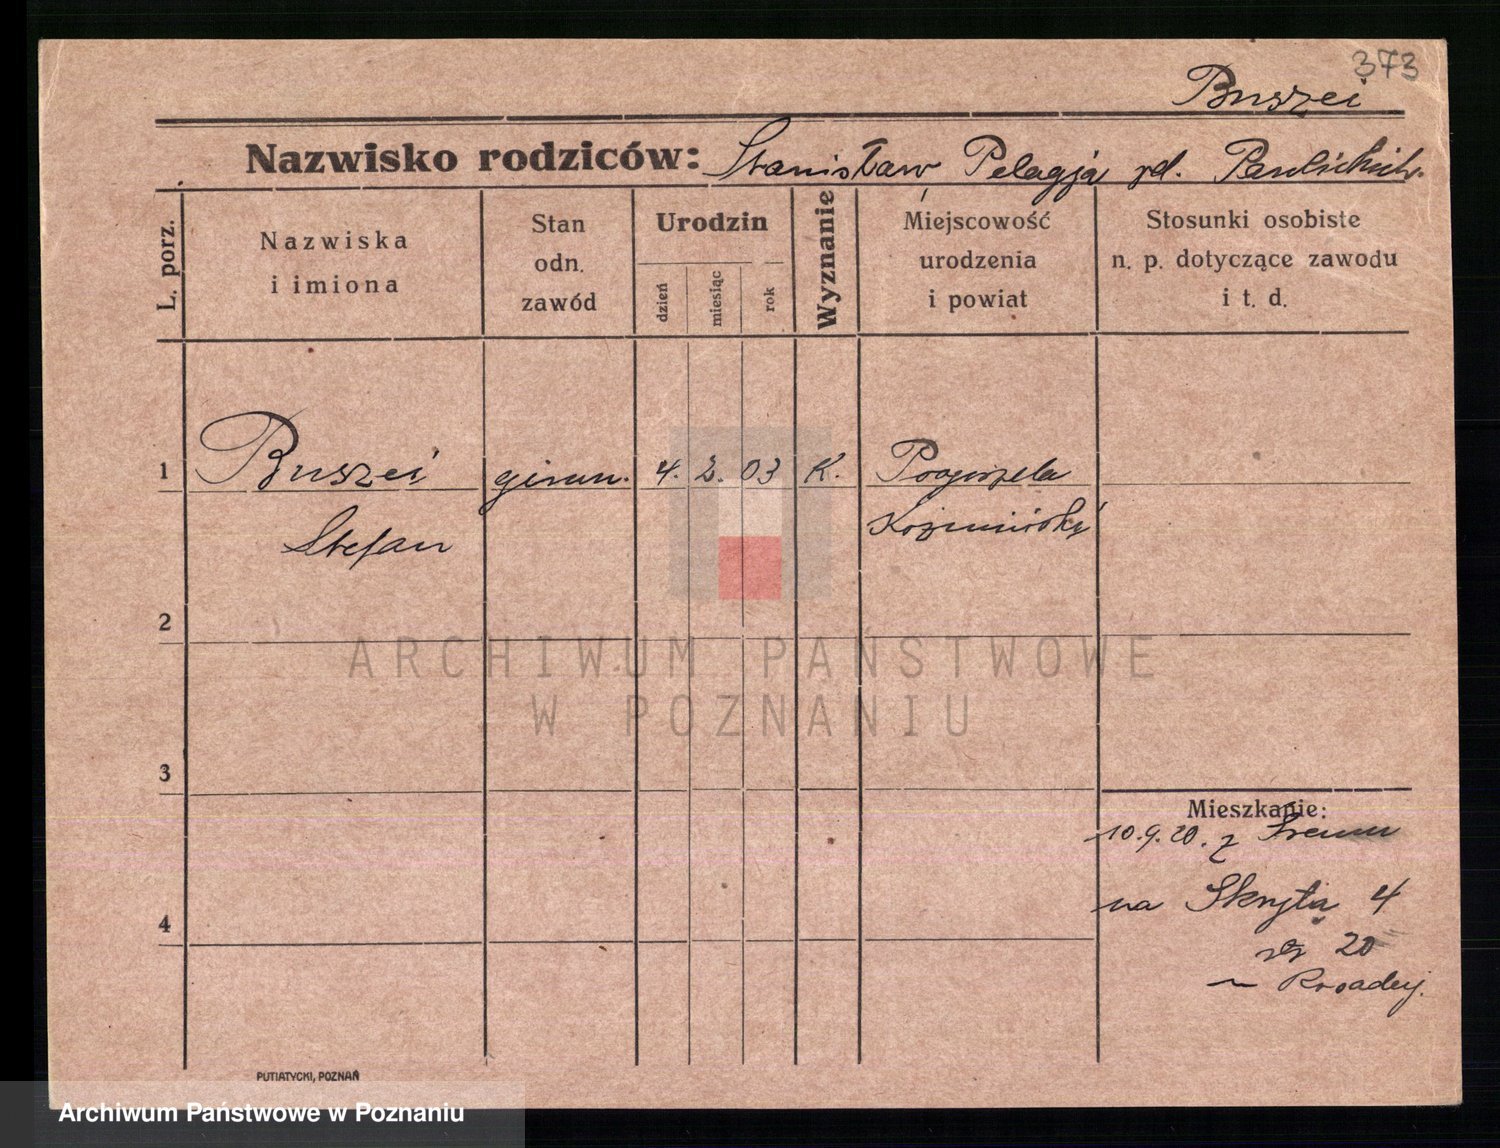 373
Buszei
Nazwisko rodziców: Stanisław Pelagja zd. Pawlickich.
L. porz.
Nazwiska
i imiona
Stan
odn.
zawód
Urodzin
dzień
miesiąc
rok
Wyznanie
Miejscowość
urodzenia
i powiat
Stosunki osobiste
n. p. dotyczące zawodu
i t. d.
1
Buszei gimn. 4. 2. 03 K. Pogorzela
Stefan Koźmiński
2
ARCHIWUM PAŃSTWOWE
W POZNANIU
3
Mieszkanie:
10.9.20. z Śremu
na Skryta 4
20
4
PUTIATYCKI, POZNAŃ
Archiwum Państwowe w Poznaniu